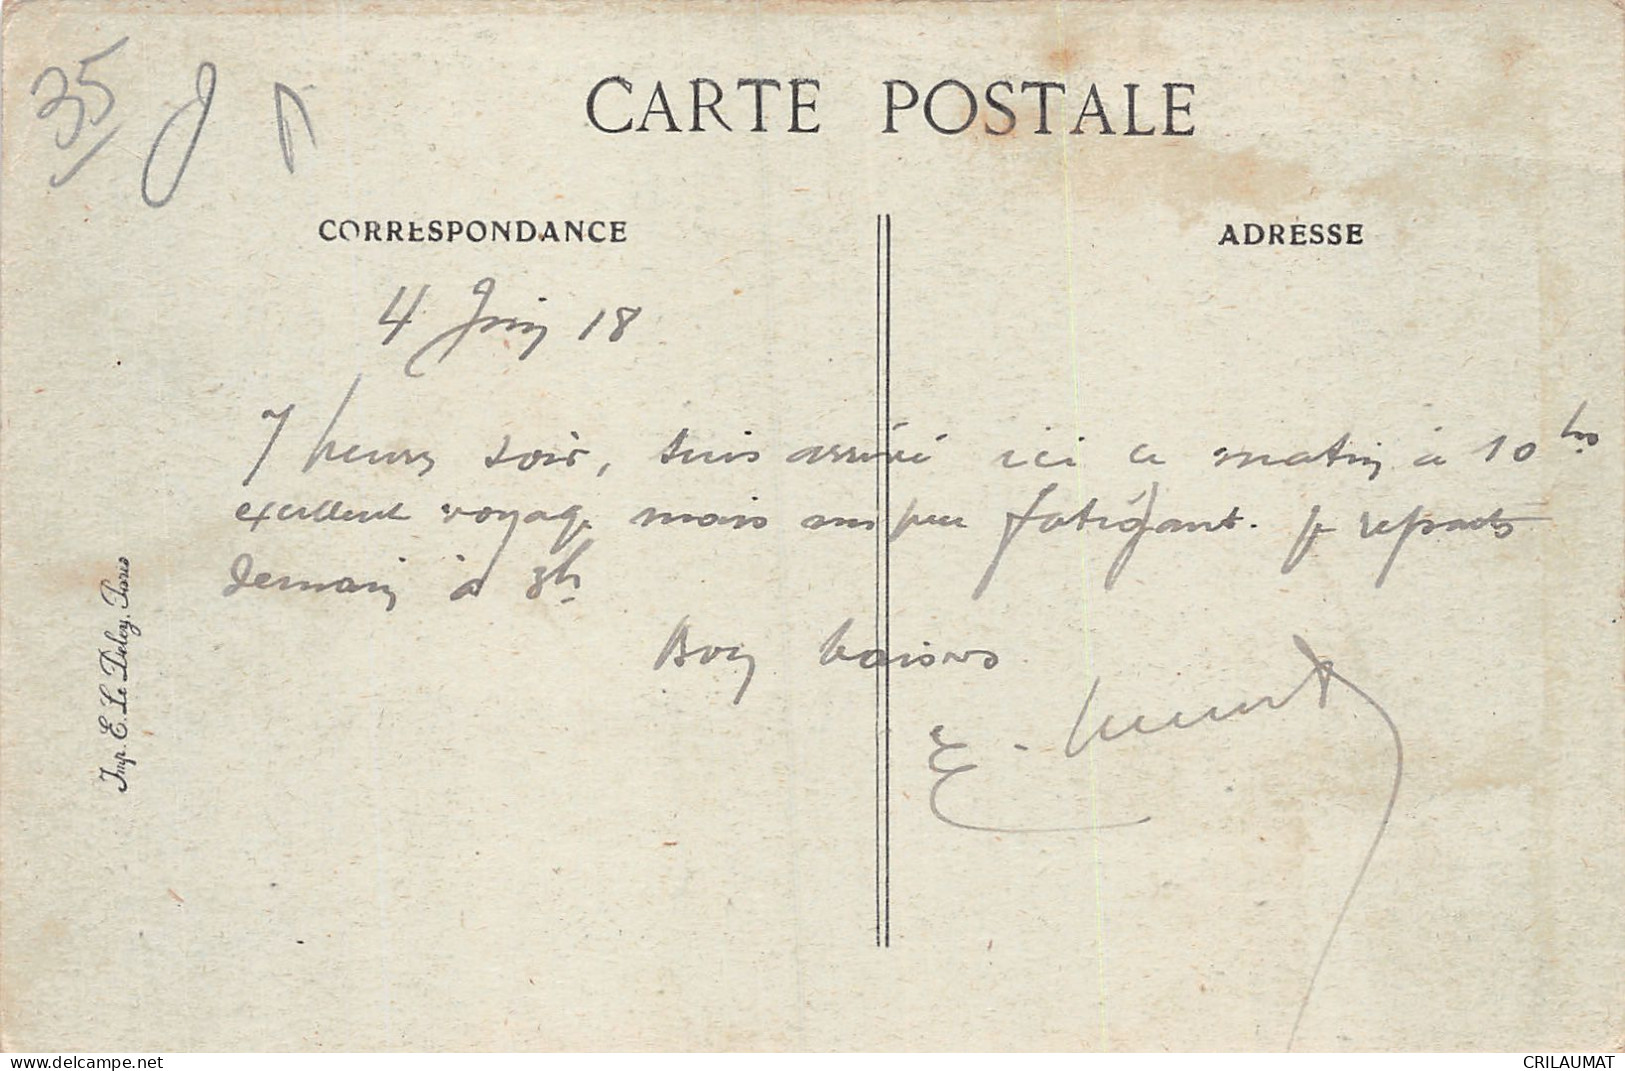 35
CARTE POSTALE
CORRESPONDANCE
ADRESSE
4 Juin 18
7 heures soir, suis arrivé ici ce matin à 10 hrs
excellent voyage mais un peu fatigant. Je repars
demain à 3h
Bons baisers
E.
Imp. E. Le Deley, Paris
www.delcampe.net
CRILAUMAT